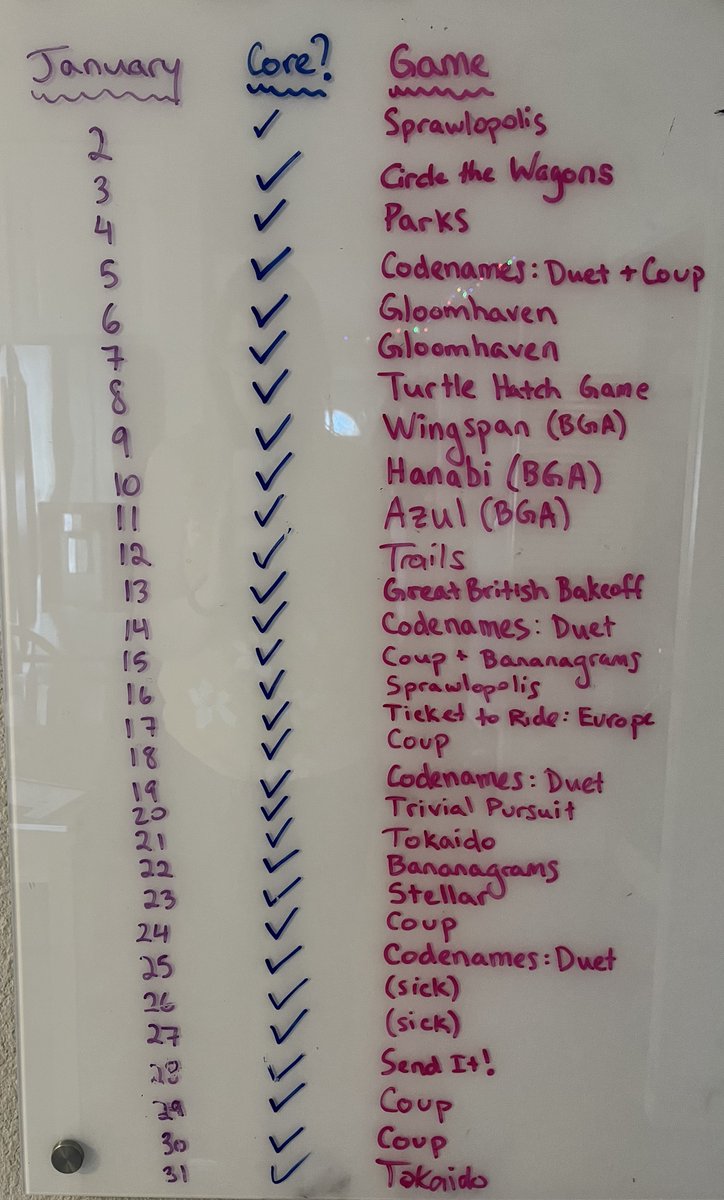 January Core? Game
2 ✓ Sprawlopolis
3 ✓ Circle the Wagons
4 ✓ Parks
5 ✓ Codenames: Duet + Coup
6 ✓ Gloomhaven
7 ✓ Gloomhaven
8 ✓ Turtle Hatch Game
9 ✓ Wingspan (BGA)
10 ✓ Hanabi (BGA)
11 ✓ Azul (BGA)
12 ✓ Trails
13 ✓ Great British Bakeoff
14 ✓ Codenames: Duet
15 ✓ Coup + Bananagrams
16 ✓ Sprawlopolis
17 ✓ Ticket to Ride: Europe
18 ✓ Coup
19 ✓ Codenames: Duet
20 ✓ Trivial Pursuit
21 ✓ Tokaido
22 ✓ Bananagrams
23 ✓ Stellar
24 ✓ Coup
25 ✓ Codenames: Duet
26 ✓ (sick)
27 ✓ (sick)
28 ✓ Send It!
29 ✓ Coup
30 ✓ Coup
31 ✓ Tokaido